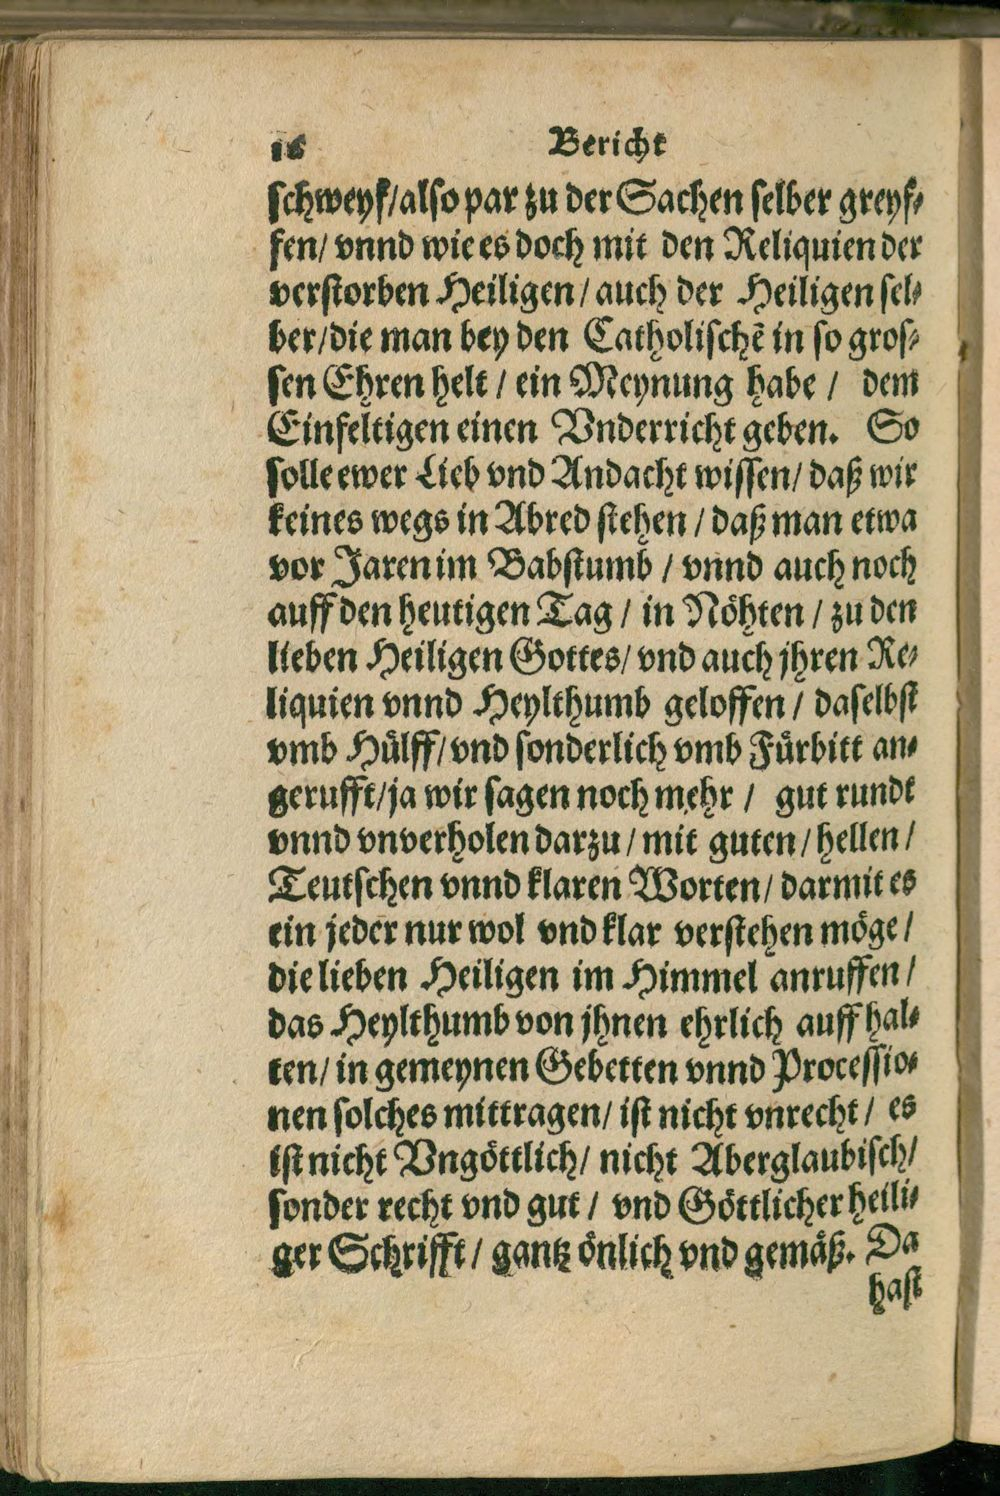 16 Bericht
schweyf/also par zu der Sachen selber greyf⸗
fen/ vnnd wie es doch mit den Reliquien der
verstorben Heiligen / auch der Heiligen sel⸗
ber/die man bey den Catholischẽ in so gros⸗
sen Ehren helt / ein Meynung habe / dem
Einfeltigen einen Vnderricht geben. So
solle ewer Lieb vnd Andacht wissen/ daß wir
keines wegs in Abred stehen / daß man etwa
vor Jaren im Babstumb / vnnd auch noch
auff den heutigen Tag / in Nöhten / zu den
lieben Heiligen Gottes/ vnd auch jhren Re⸗
liquien vnnd Heylthumb geloffen / daselbst
vmb Hülff/ vnd sonderlich vmb Fürbitt an⸗
gerufft/ja wir sagen noch mehr / gut rundt
vnnd vnverholen darzu / mit guten / hellen /
Teutschen vnnd klaren Worten/ darmit es
ein jeder nur wol vnd klar verstehen möge /
die lieben Heiligen im Himmel anruffen /
das Heylthumb von jhnen ehrlich auff hal⸗
ten/ in gemeynen Gebetten vnnd Processio⸗
nen solches mittragen/ ist nicht vnrecht / es
ist nicht Vngöttlich/ nicht Aberglaubisch/
sonder recht vnd gut / vnd Göttlicher heili⸗
ger Schrifft / gantz önlich vnd gemäß. Da
hast